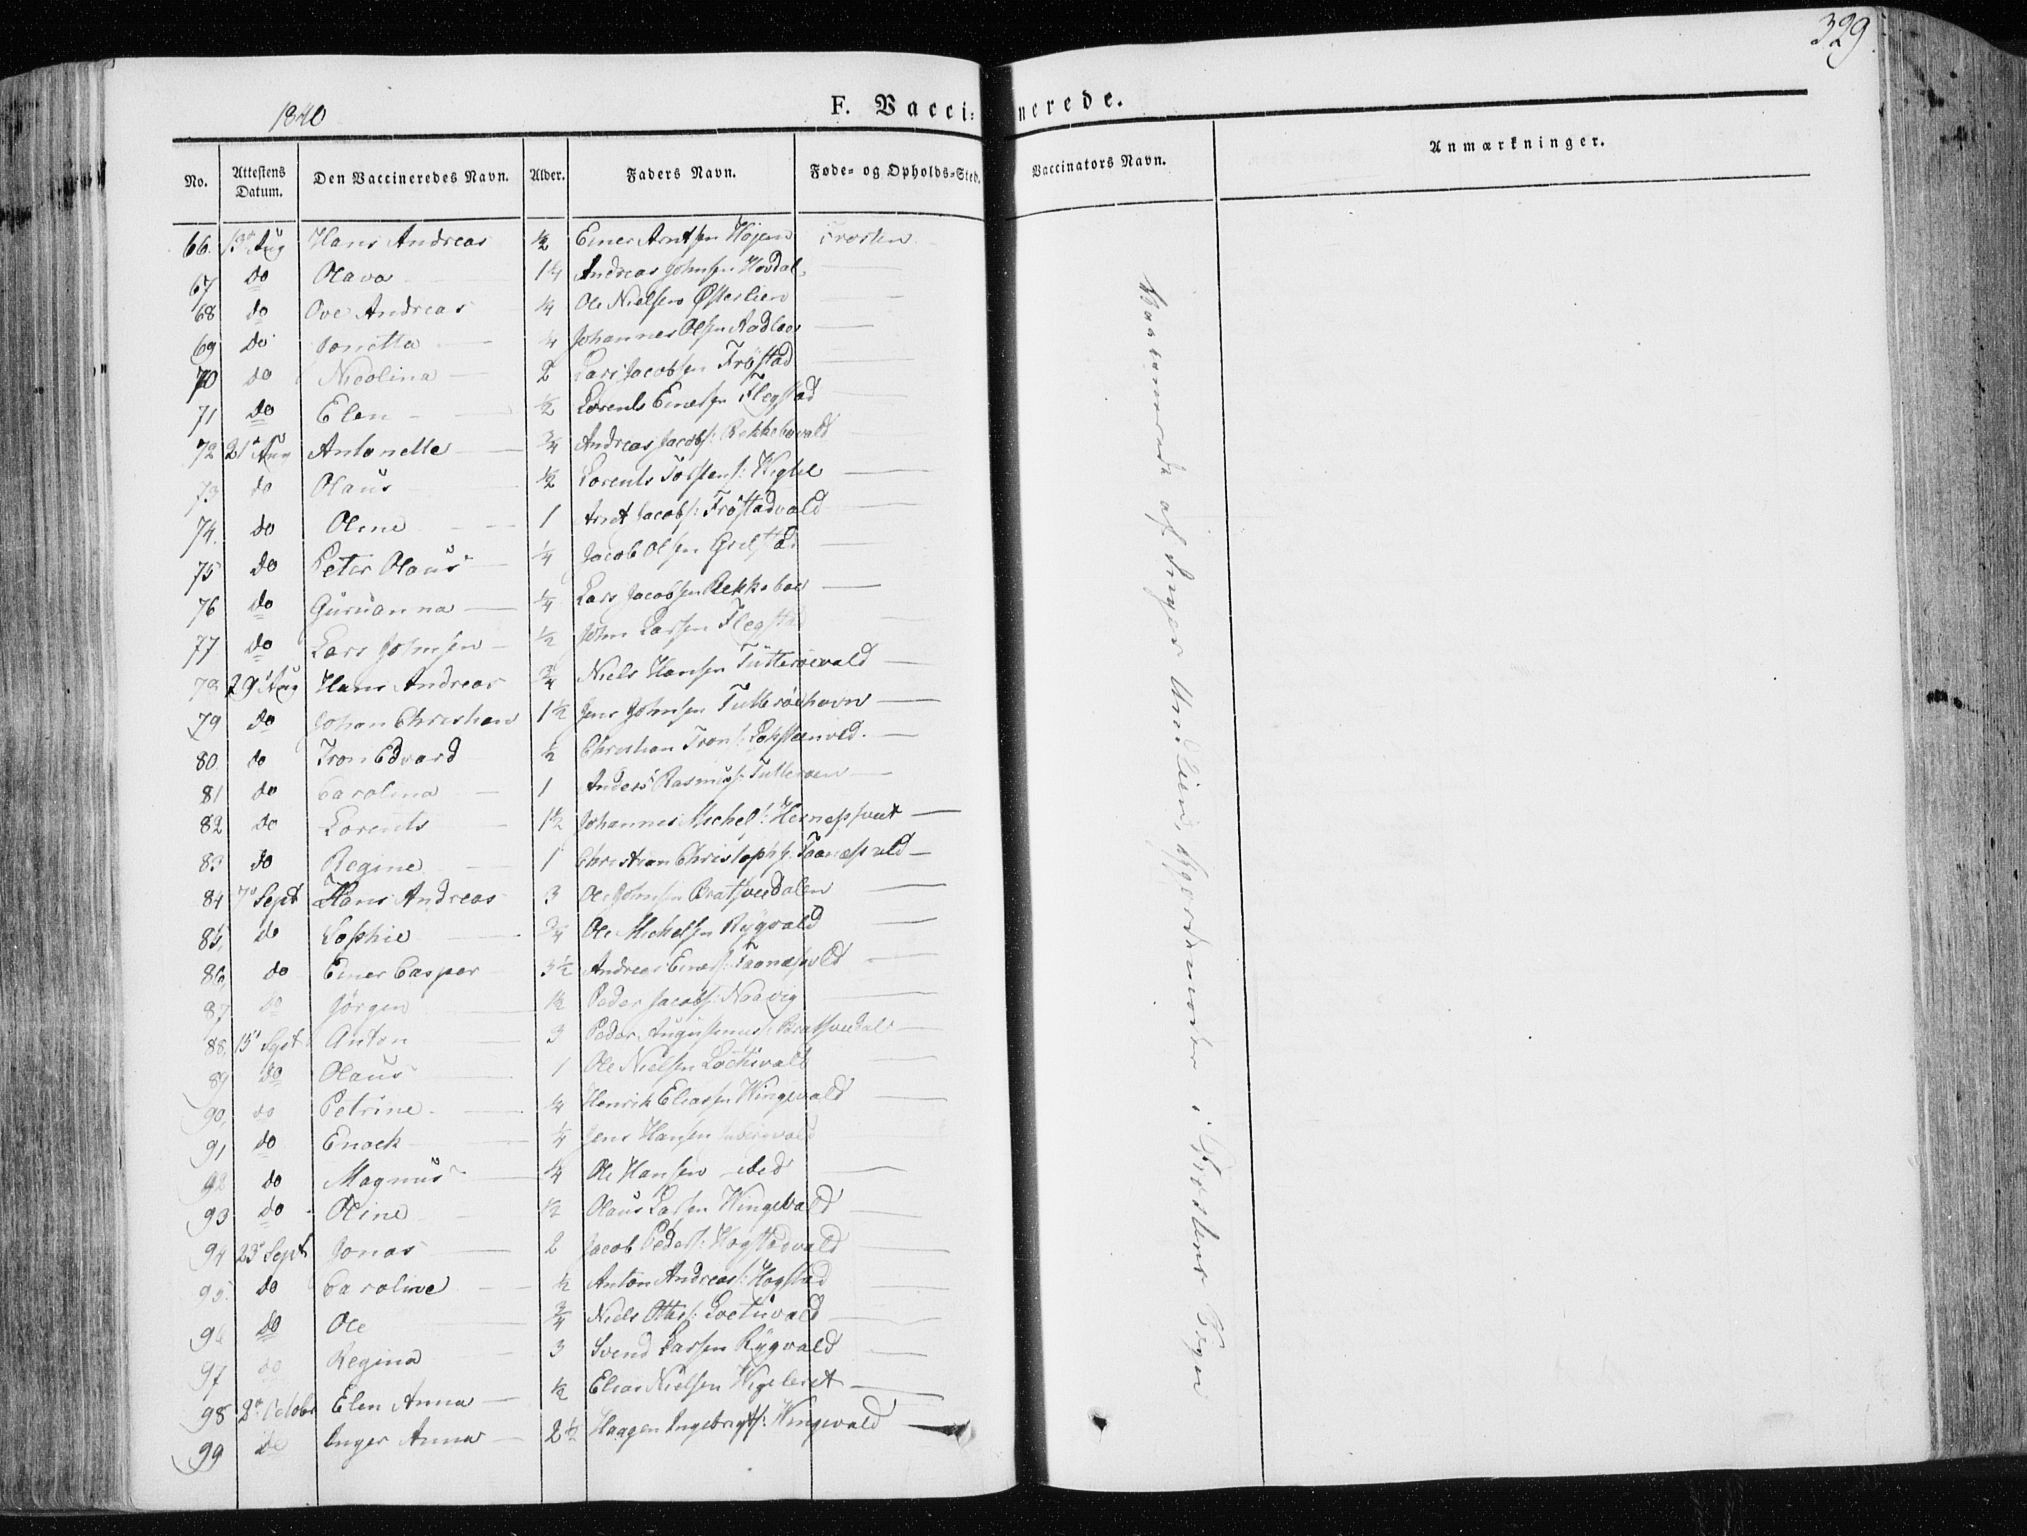 329
1840
F. Vaccinerede.
No. Attestens Datum. Den Vaccineredes Navn. Alder. Faders Navn. Føde- og Opholds-Sted. Vaccinators Navn. Anmærkninger.
66. Aug Hans Andreas ½ Einer Arntsen Höjem Frosten
67 do Olava 1¼ Andreas Johnsen Hovdal
68 do Ove Andreas ¼ Ole Nielsen Østerlien
69 do Jonetta ¼ Johannes Olsen
70 do Nicolina 2 Lars Jacobsen Fröstad
71 do Elen ½ Lorents Einersen Flegstad
72 21 Aug Antonette ¾ Andreas Jacobs:
73 do Olaus ½ Lorents
74. do Oline 1 Arnt Jacobs: Fröstadvald
75 do Peter Olaus ¼ Jacob Olsen
76 do Guruanna ¼ Lars Jacobsen Rekkeboe
77 do Lars Johnsen ½ John Larsen Flegstad
78 29 Aug Hans Andreas ¾ Niels Hansen Tutteröevald
79 do Johan Christian 1½ Jens Johnsen Tutteröehavn
80 do Tron Edvard ½ Christian Trons:
81 do Carolina 1 Anders Rasmus: Tutteröen
82 do Lorents 1½ Johannes Michels:
83 do Regine 1 Christian Christophs:
84 7 Sept Hans Andreas 3 Ole Johnsen
85, do Sophie ¾ Ole Michelsen Rygvald
86, do Einer Casper 3½ Andreas Einers:
87 do Jörgen ½ Peder Jacobs: Naavig
88, 15 Sept Anton 3 Peder
89 do Olaus 1 Ole Nielsen
90, do Petrine ¼ Henrik Eliassen Wingevald
91 do Enoch ¼ Jens Hansen
92 do Magnus ¼ Ole Hansen ibid
93 do Oline ½ Olaus Larsen Wingevald
94 23 Sept Jonas 2 Jacob Peders: Hogstadvald
95. do Caroline ½ Anton Andreas: Hogstad
96 do Ole ¾ Niels Ottes:
97 do Regina 3 Svend Larsen Rygvald
98 2 October Elen Anna ½ Elias Nielsen
99 do Inger Anna 2½ Haagen Ingebrigts: Wingevald
Vaccinerede af Inger Gjordemoder i Frosten